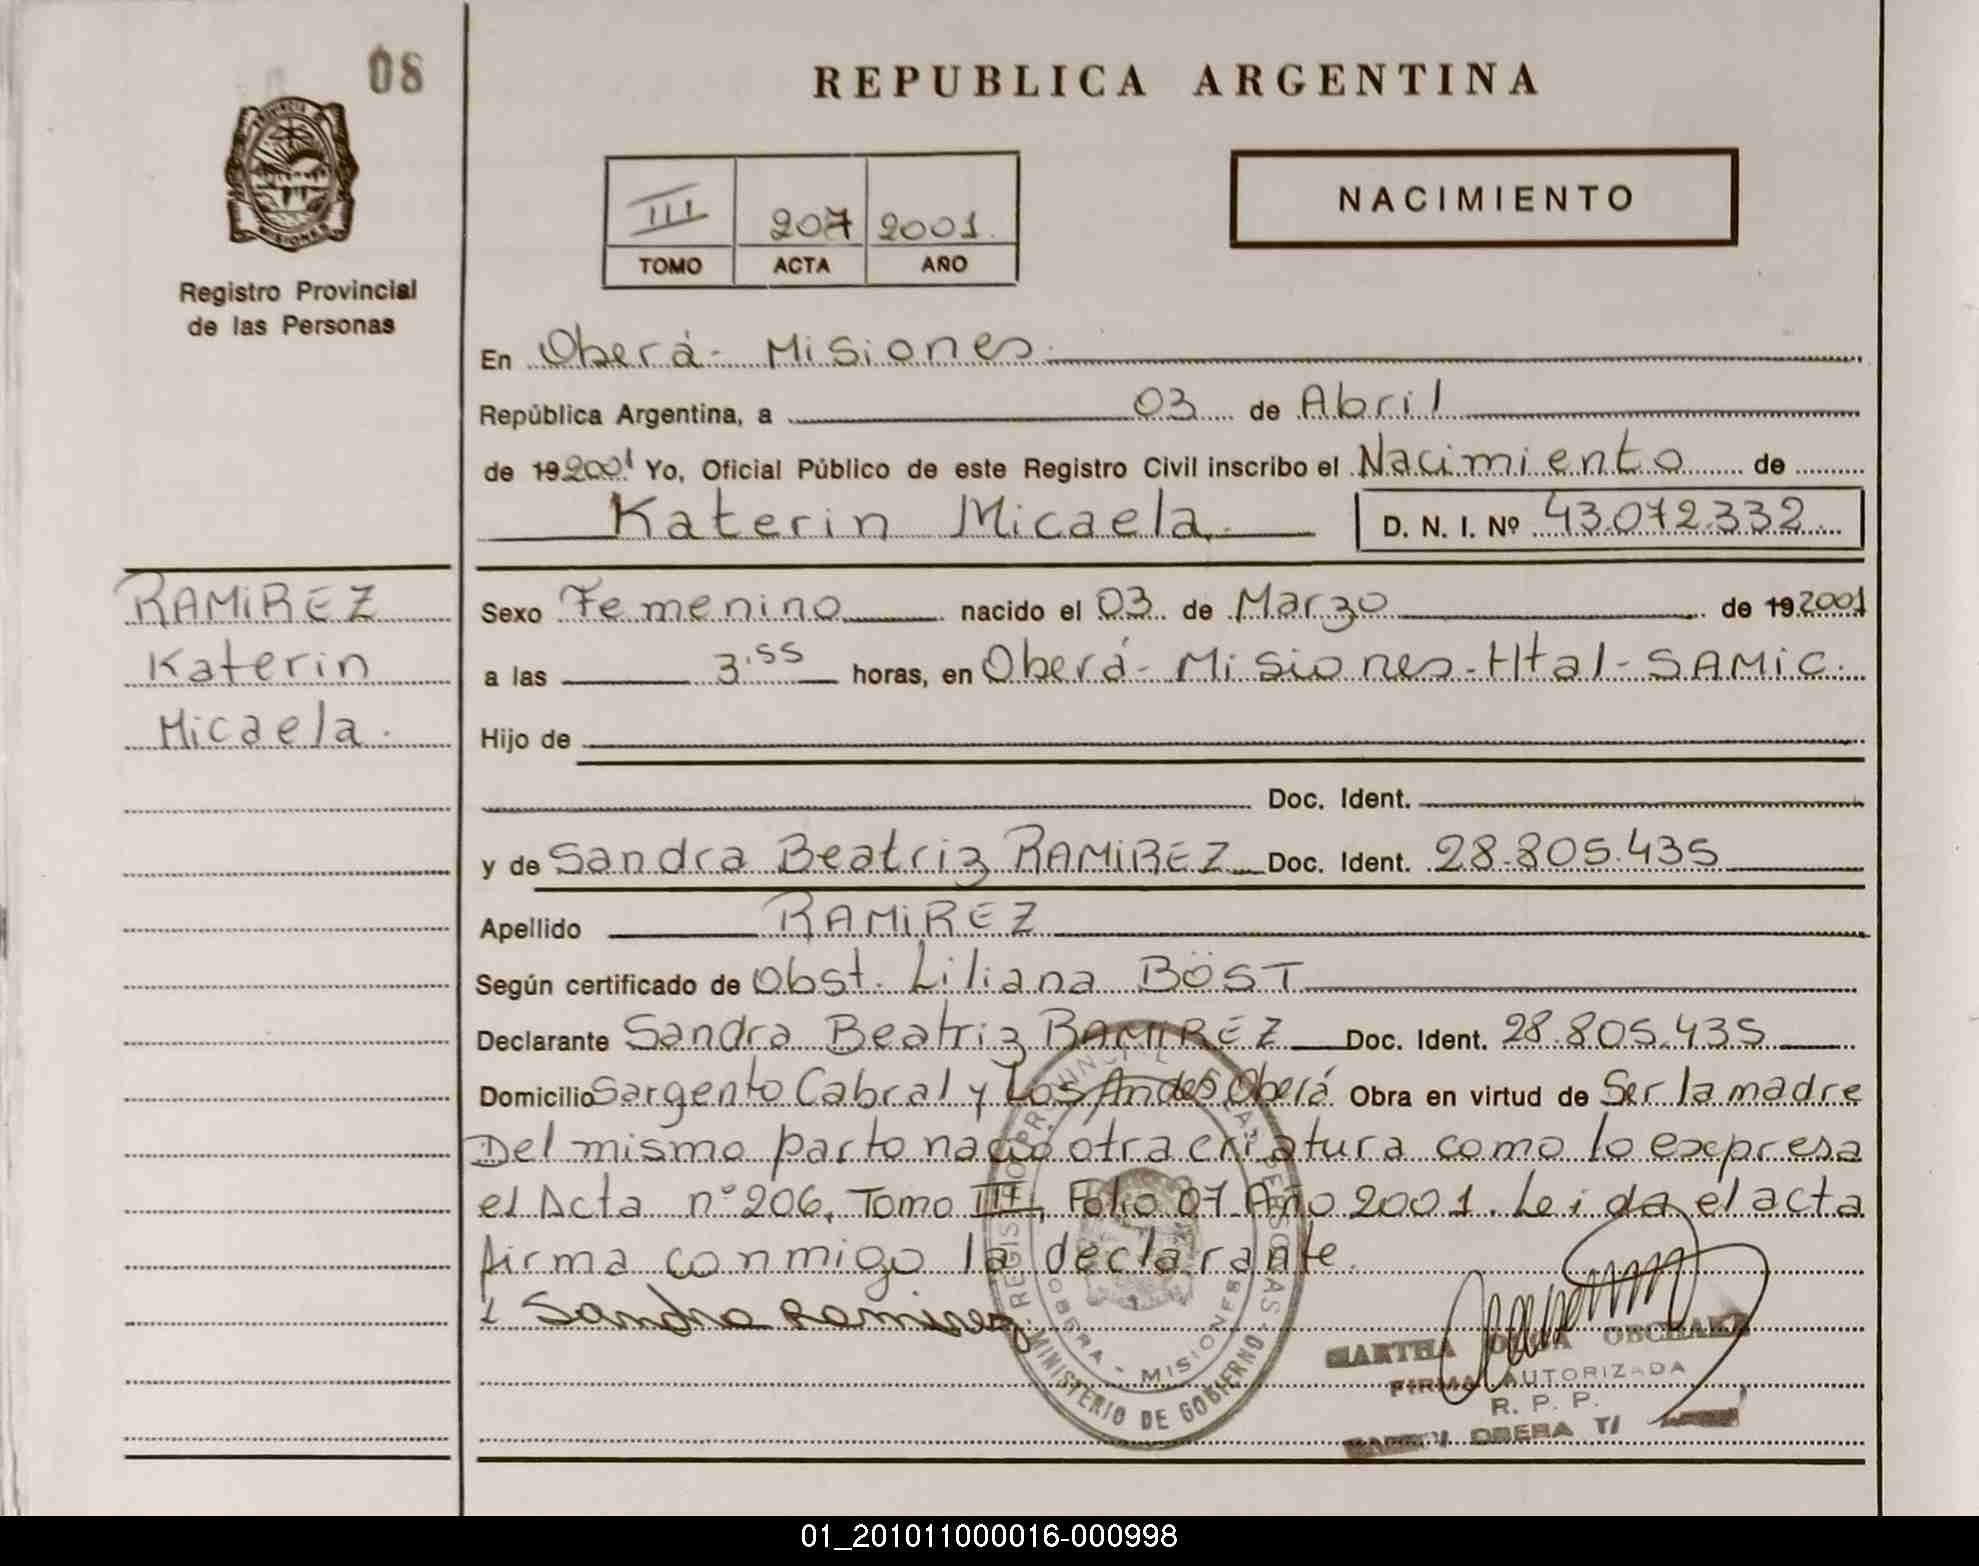 08
REPUBLICA ARGENTINA
PROVINCIA
MISIONES
Registro Provincial
de las Personas
III 207 2001.
TOMO ACTA AÑO
NACIMIENTO
En Oberá- Misiones.
República Argentina, a 03 de Abril
de 19 2001 Yo, Oficial Público de este Registro Civil inscribo el Nacimiento de
Katerin Micaela. D. N. I. Nº 43.072.332
RAMIREZ
Katerin
Micaela.
Sexo Femenino nacido el 03 de Marzo de 19 2001
a las 3.55 horas, en Oberá- Misiones-Htal-SAMIC.
Hijo de
Doc. Ident.
y de Sandra Beatriz RAMIREZ Doc. Ident. 28.805.435
Apellido RAMIREZ
Según certificado de Obst. Liliana BÖST
Declarante Sandra Beatriz RAMIREZ Doc. Ident. 28.805.435
Domicilio Sargento Cabral y Los Andes Oberá Obra en virtud de Ser la madre
Del mismo parto nació otra criatura como lo expresa
el Acta nº 206, Tomo III, Folio 07 Año 2001. Leida el acta
firma conmigo la declarante.
Sandra Ramirez
REGISTRO PROVINCIAL DE LAS PERSONAS
OBERA - MISIONES
MINISTERIO DE GOBIERNO
MARTHA
FIRMA AUTORIZADA
R. P. P.
OBERA T/
01_201011000016-000998